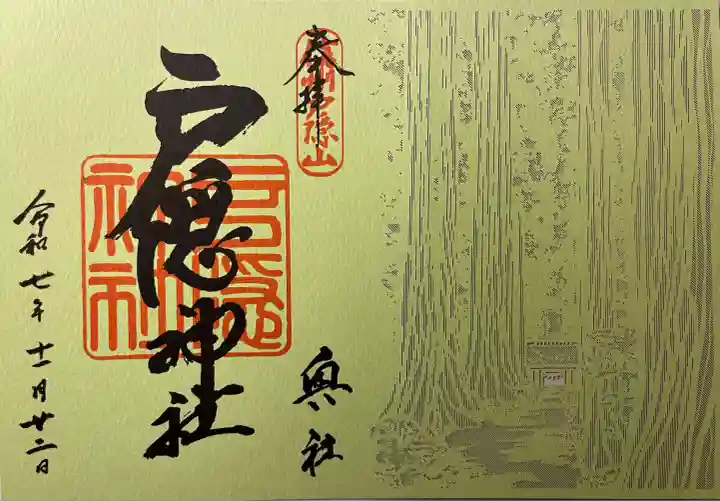 奉拝
信州戸隠山
奥社
戸隠神社
令和七年十一月廿二日